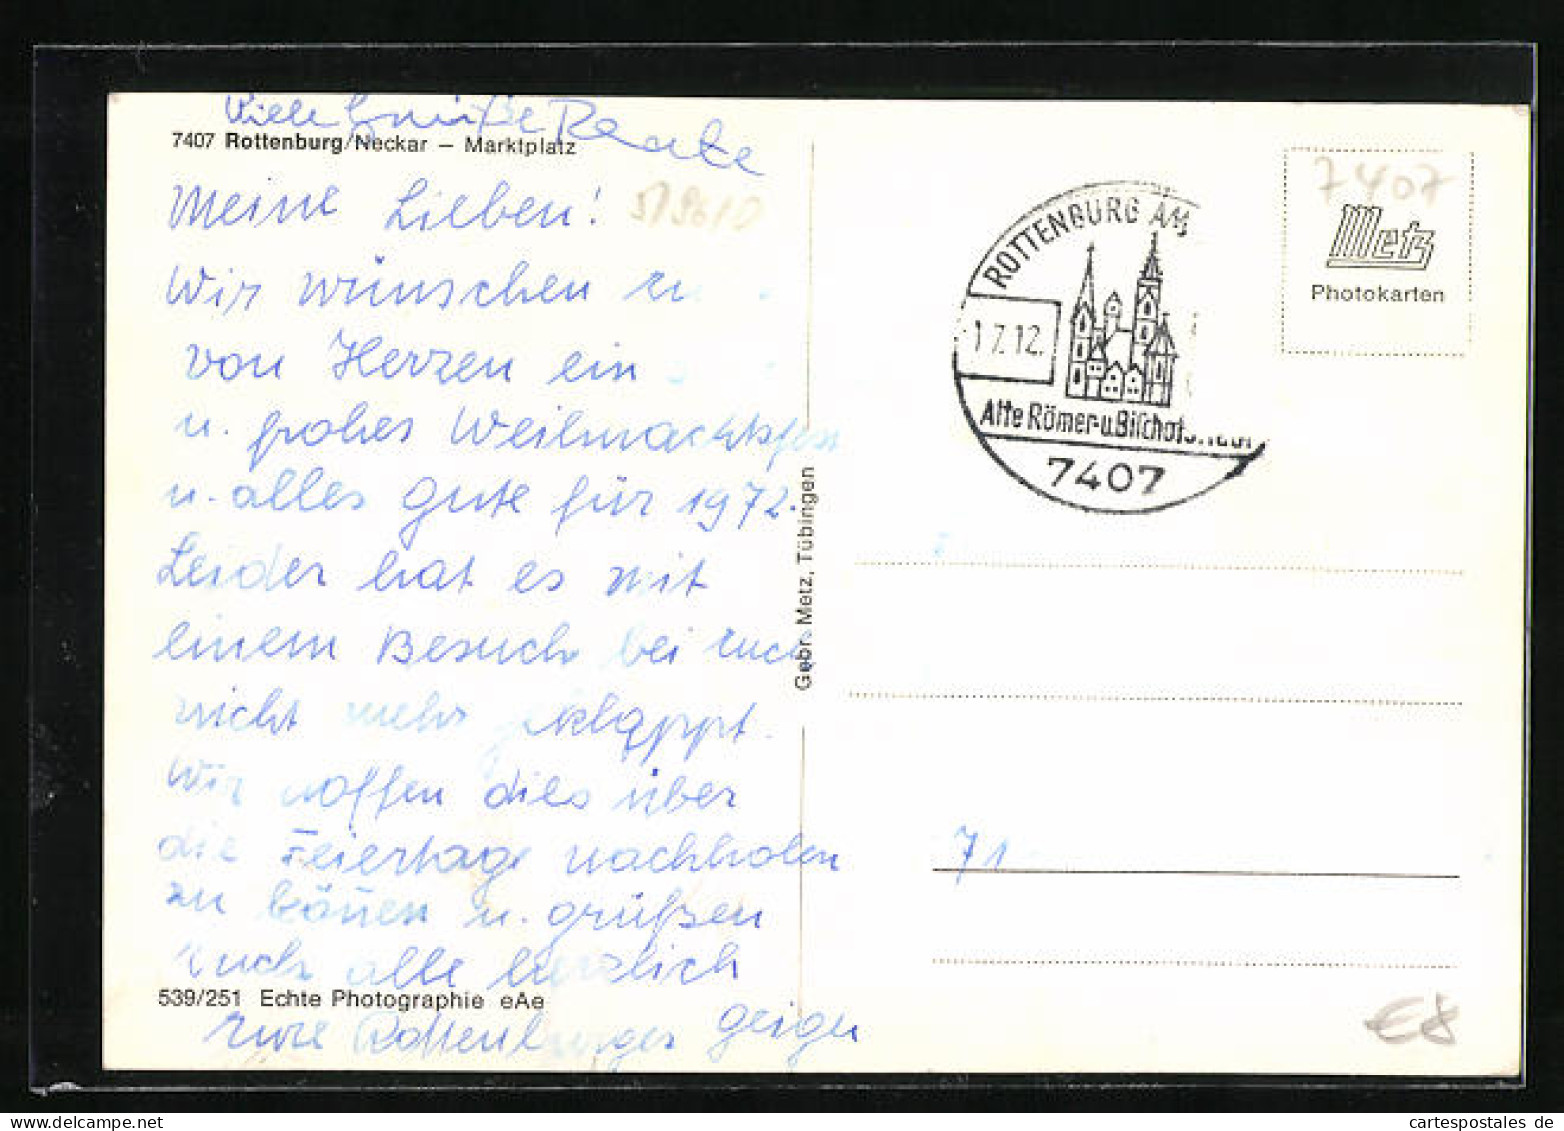 Viele Grüße Renate
7407 Rottenburg/Neckar – Marktplatz
Meine Lieben!
Wir wünschen
von Herzen ein
u. frohes Weihnachtsfest
u. alles Gute für 1972.
Leider hat es mit
einem Besuch bei Euch
nicht mehr geklappt.
Wir hoffen dies über
die Feiertage nachholen
zu können u. grüßen
Euch alle herzlich
539/251 Echte Photographie eAe
Eure Rottenburger
Gebr. Metz, Tübingen
ROTTENBURG AM
17.12.
Alte Römer-u.Bischofsstadt
7407
7407
Metz
Photokarten
71
€8
cartespostales de
www.delcampe.net